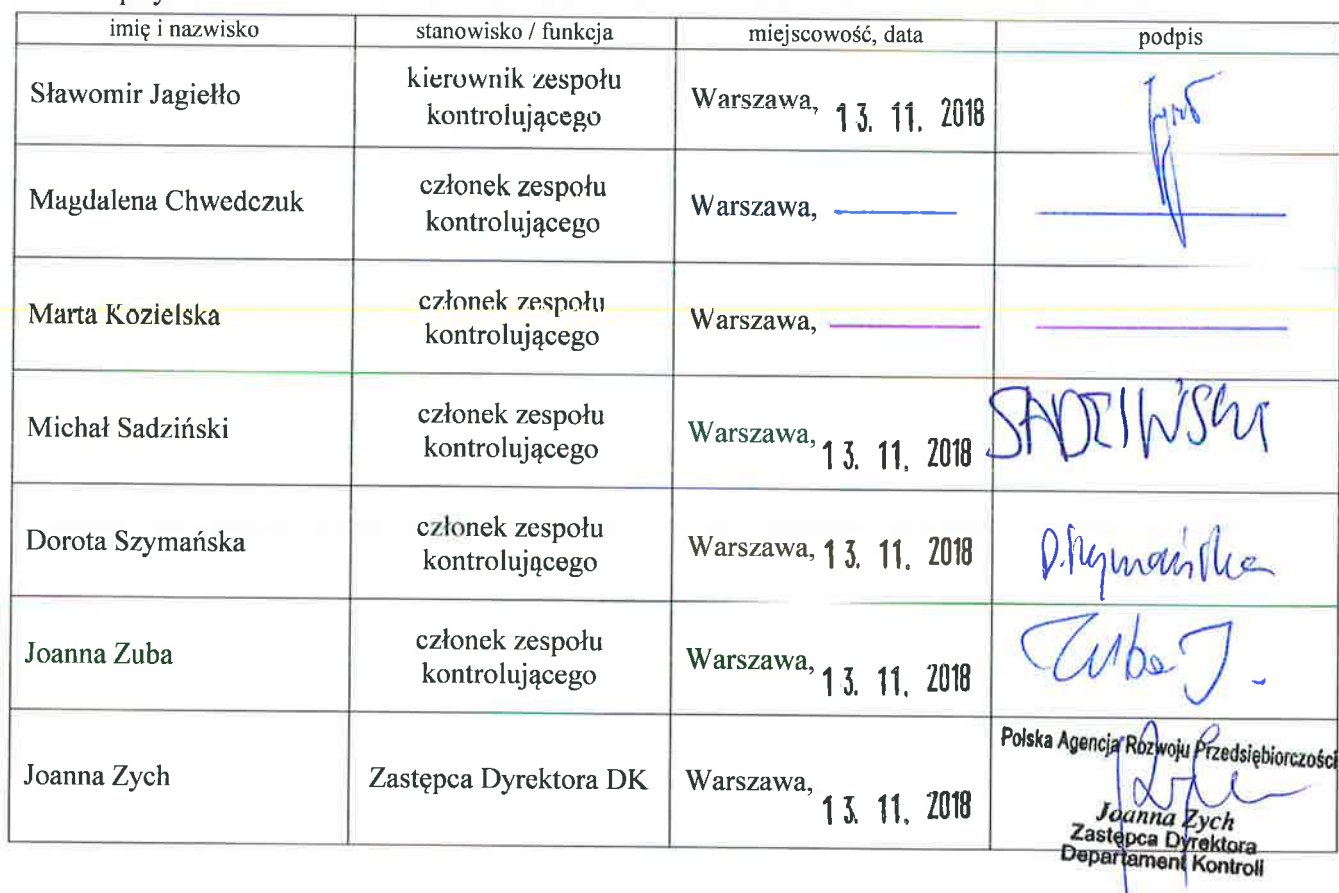 imię i nazwisko stanowisko / funkcja miejscowość, data podpis
Sławomir Jagiełło kierownik zespołu kontrolującego Warszawa, 13. 11. 2018
Magdalena Chwedczuk członek zespołu kontrolującego Warszawa,
Marta Kozielska członek zespołu kontrolującego Warszawa,
Michał Sadziński członek zespołu kontrolującego Warszawa, 13. 11. 2018
Dorota Szymańska członek zespołu kontrolującego Warszawa, 13. 11. 2018 D. Szymańska
Joanna Zuba członek zespołu kontrolującego Warszawa, 13. 11. 2018 Zuba J.
Joanna Zych Zastępca Dyrektora DK Warszawa, 13. 11. 2018
Polska Agencja Rozwoju Przedsiębiorczości
Joanna Zych
Zastępca Dyrektora
Departament Kontroli